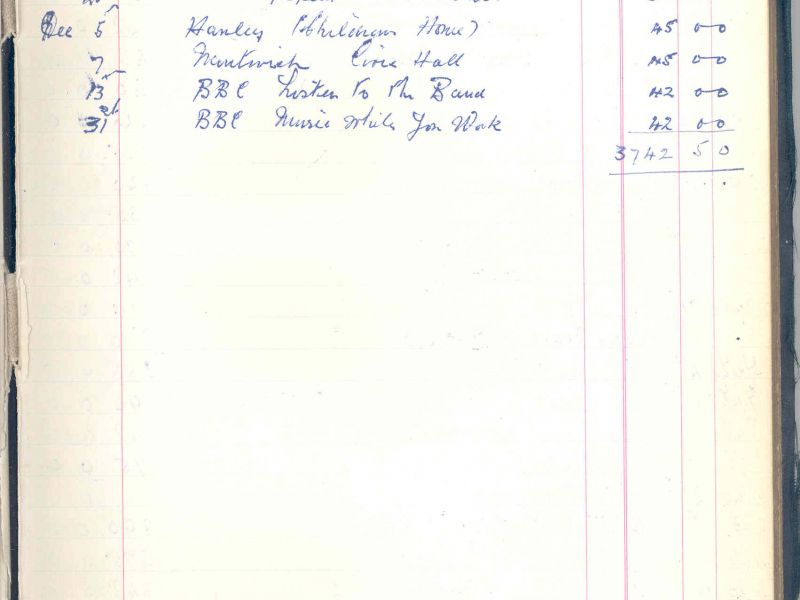 Dec 5 Hanley (Childrens Home) 45 00
7 Nantwich Civic Hall 45 00
13 BBC Listen To The Band 42 00
31st BBC Music While You Work 42 00
3742 50